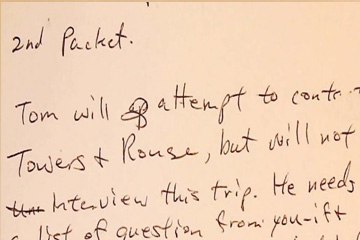 2nd Packet.
Tom will attempt to conta
Towers & Rouse, but will not
Interview this trip. He needs
a list of question from you-ift